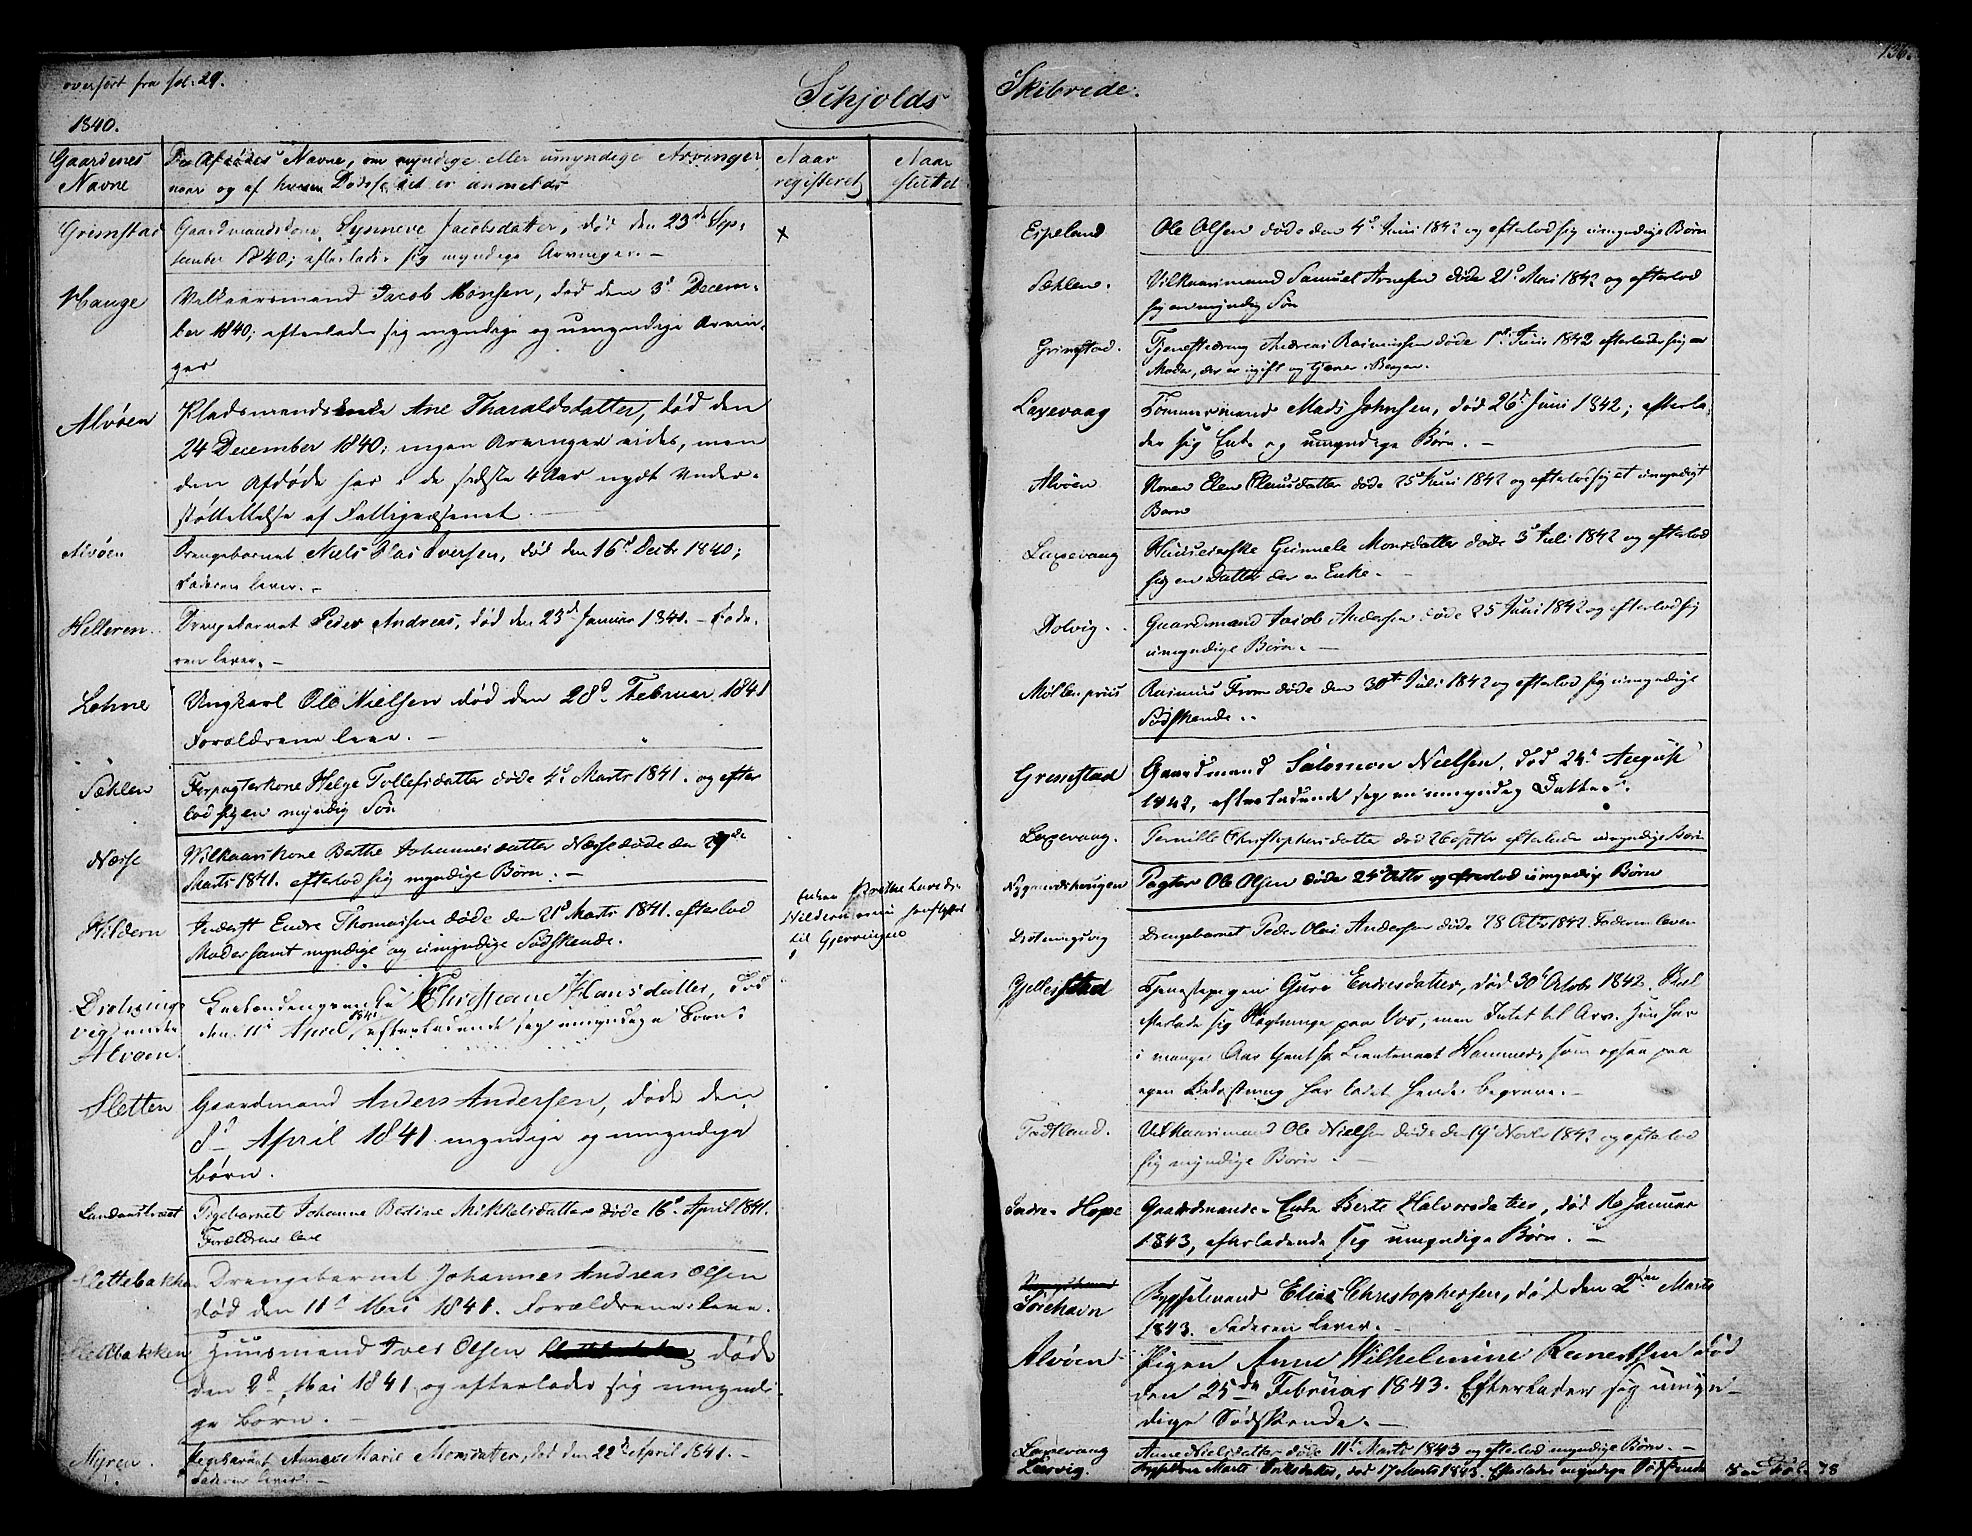 overført fra fol. 29.
1840.
Schjolds
Gaardenes Navne
De Afdødes Navne, om myndige eller umyndige Arvinger
naar og af hvem Dødsfaldet er anmeldt
Naar registeret
Naar sluttet
Grimstad
Gaardmandskone Synneve Jacobsdatter, død den 23de Sep-
tember 1840; efterlader sig myndige Arvinger. –
x
Hauge
Vilkaarsmand Jacob Monsen, død den 3d Decem-
ber 1840; efterlader sig myndige og umyndige Arvin-
ger
Alvøen
Pladsmands Ane Tharaldsdatter, død den
24 December 1840; ingen Arvinger vides, men
den Afdøde har i de sidste 4 Aar nydt Under-
støttettelse af Fattigvæsenet
Alvøen
Drengebarnet Niels Iversen, død den 16d Decbr 1840;
Faderen lever. –
Helleren
Drengebarnet Peder Andreas, død den 23d Januar 1841. – Fade-
ren lever. –
Lohne
Ungkarl Ole Nielsen død den 28d Februar 1841
Forældrene leve. –
Sæhlen
Forpagterkone Helge Tollefsdatter døde 4d Marts 1841. og efter
lod sig en myndig Søn
Næsse
Vilkaarskone Berthe Johannesdatter Næsse døde den 29de
Marts 1841. efterlod sig myndige Børn. –
Hildern
Inderst Endre Thomassen døde den 21d Marts 1841. efterlod
Moder samt myndige og umyndige Sødskende.
Enken
Hildern
til Gjerningen
Drotnings
vig under
Alvøen
Christiane Hansdatter, død
den 11d April 1841 efterladende sig umyndige Børn.
Sletten
Gaardmand Anders Andersen, døde den
8d April 1841. myndige og umyndige
Børn.
Landaastræet
Pigebarnet Johanne Bertine Mikkelsdatter døde 16d April 1841.
Forældrene leve
Slettebakken
Drengebarnet Johannes Andreas Olsen
død den 11d Mai 1841. Forældrene leve.
Slettebakken
Huusmand Iver Olsen døde
den 2d Mai 1841, og efterlader sig umyndi
ge Børn. –
Myren.
Pigebarnet Anne Marie Monsdatter, død den 22de April 1841. –
Faderen lever. –
Skibrede.
136.
Espeland
Ole Olsen døde den 4d Juni 1842 og efterlod sig umyndige Børn
Sæhlen.
Vilkaarsmand Samuel Arnesen døde 21d Mai 1842 og efterlod
sig en myndig Søn
Grimstad.
Tjenestedreng Andreas Rasmussen døde 1ste Juni 1842 efterlader sig en
Moder, der er ugift og tjener i Bergen.
Laxevaag
Tømmermand Mads Johnsen, død 26d Juni 1842; efterla-
der sig Enke og umyndige Børn. –
Alvøen
Konen Elen Clausdatter døde 25 Juni 1842 og efterlod sig et umyndigt
Barn
Laxevaag
Gunnele Monsdatter døde 3d Juli 1842 og efterlod
sig en Datter der er Enke. –
Dolvig.
Gaardmand Jacob Andersen døde 25 Juni 1842 og efterlod sig
umyndige Børn. –
Møllenpriis
Rasmus From døde den 30te Juli 1842 og efterlod sig umyndige
Sødskende. –
Grimstad
Gaardmand Salomon Nielsen, død 24d August
1842, efterladende sig en umyndig Datter.
Laxevaag.
Pernille Christophersdatter død 26 Septbr efterlader umyndige Børn
Nygaardshougen
Pagter Ole Olsen døde 24d Octbr og efterlod umyndig Børn
Drotningsvig
Drengebarnet Peder Olai Andersen døde 28 Octbr 1842. Faderen lever
Gjellestad
Tjenestepigen Guro Endresdatter, død 30d Octobr 1842. Skal
efterlade sig Slægtninge paa Vos, men Intet til Arv. Hun har
i mange Aar tjent hos Lieutenant Hammer, som ogsaa paa
egen Bekostning har ladet hende begrave. –
Tædtland.
Vilkaarsmand Ole Nielsen døde den 19d Novbr 1842 og efterlod
sig myndige Børn. –
Indre-Hope
Gaardmands-Enke Berte Halvorsdatter, død 16 Januar
1843, efterladende sig umyndige Børn. –
Sørehavn
Bygselmand Elias Christophersen, død den 2den Marts
1843. Faderen lever. –
Alvøen
Pigen Anne Wilhelmine Reinertsen død
den 25de Februar 1843. Efterlader sig umyn-
dige Sødskende. –
Laxevaag
Anne Nielsdatter døde 11d Marts 1843 og efterlod myndige Børn. –
Larvig.
Marte død 17 Marts 1843. Efterlader myndige Sødskende
78